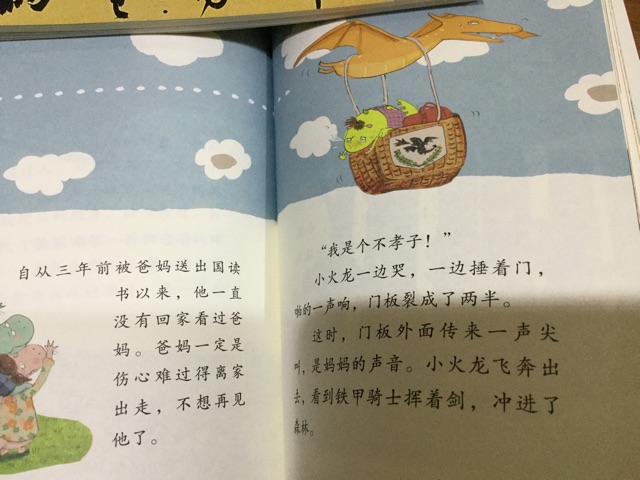 自从三年前被爸妈送出国读
书以来，他一直
没有回家看过爸
妈。爸妈一定是
伤心难过得离家
出走，不想再见
他了。
“我是个不孝子！”
小火龙一边哭，一边捶着门，
啪的一声响，门板裂成了两半。
这时，门板外面传来一声尖
叫，是妈妈的声音。小火龙飞奔出
去，看到铁甲骑士挥着剑，冲进了
森林。